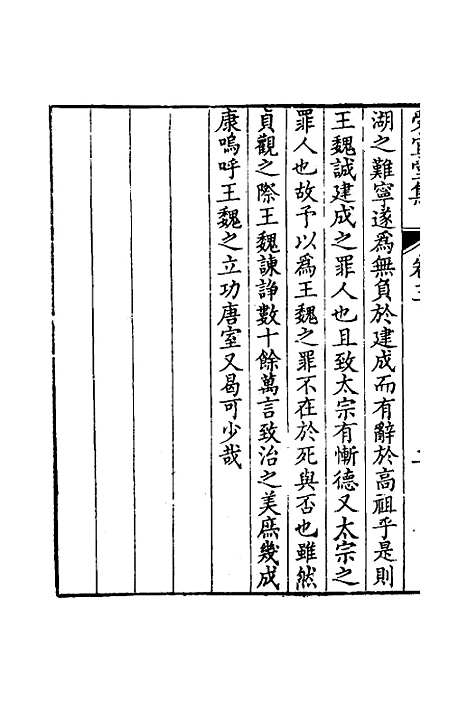 湖之難寧遂爲無負於建成而有辭於高祖乎是則
王魏誠建成之罪人也且致太宗有慚德又太宗之
罪人也故予以爲王魏之罪不在於死與否也雖然
貞觀之際王魏諫諍數十餘萬言致治之美庶幾成
康嗚呼王魏之立功唐室又曷可少哉